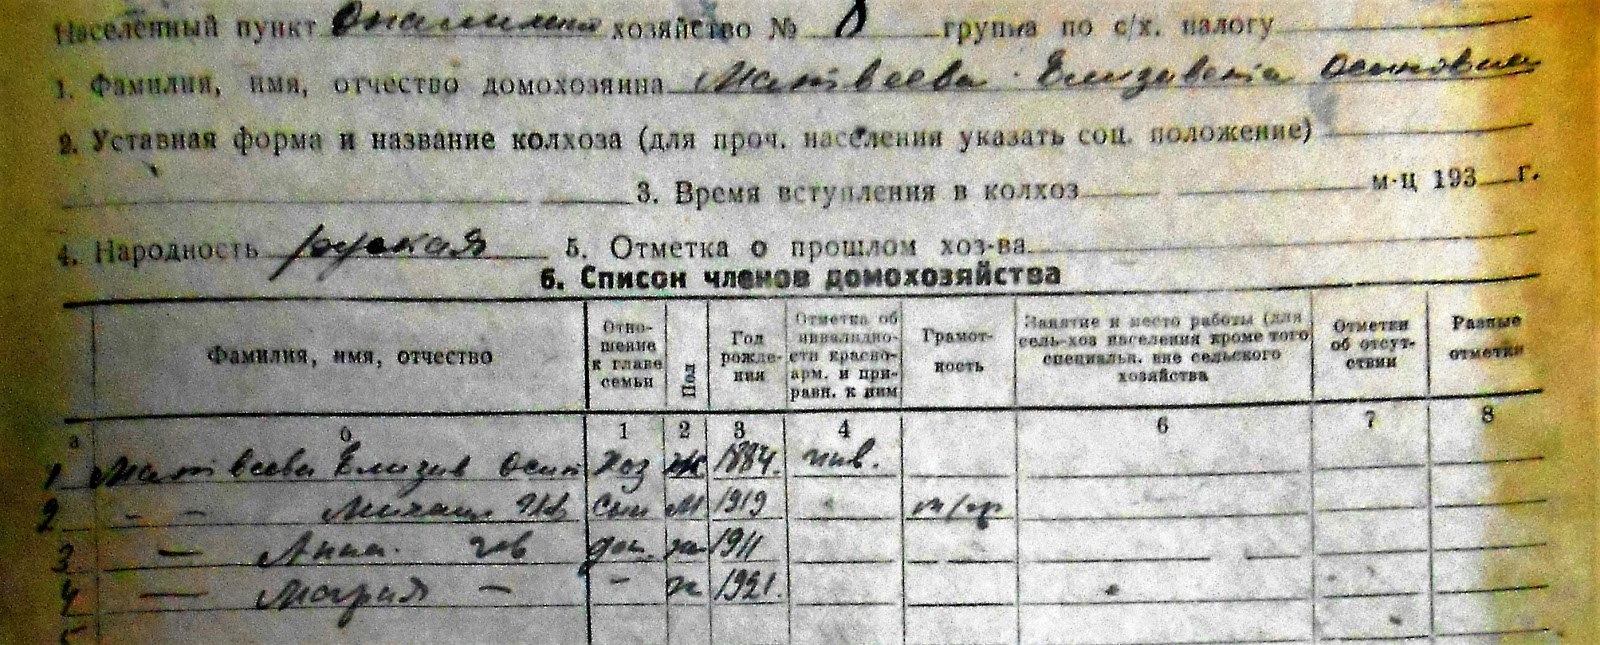 Населенный пункт хозяйство № 8 группа по с/х. налогу
1. Фамилия, имя, отчество домохозяина Матвеева Елизавета Осиповна
2. Уставная форма и название колхоза (для проч. населения указать соц. положение)
3. Время вступления в колхоз м-ц 193 г.
4. Народность руская 5. Отметка о прошлом хоз-ва
6. Список членов домохозяйства
Фамилия, имя, отчество
Отно-
шение
к главе
семьи
Пол
Год
рожде-
ния
Отметка об
инвалидно-
сти красно-
арм. и при-
равн. к ним
Грамот-
ность
Занятие и место работы (для
сель-хоз населения кроме того
специальн. вне сельского
хозяйства
Отметки
об отсут-
ствии
Разные
отметки
а б 1 2 3 4 6 7 8
1 Матвеева Елизав Осип Хоз ж 1884. инв.
2 - - Михаил Ив сын м 1919 м/гр
3 — Анна. Ив доч. ж 1911
4 — Мария — - ж 1921.
5